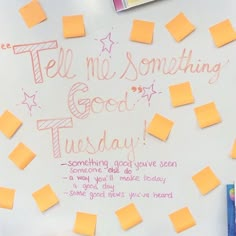 "Tell me Something
Good"
Tuesday!
- something good you've seen
someone else do
- a way you'll make today
a good day
- some good news you've heard